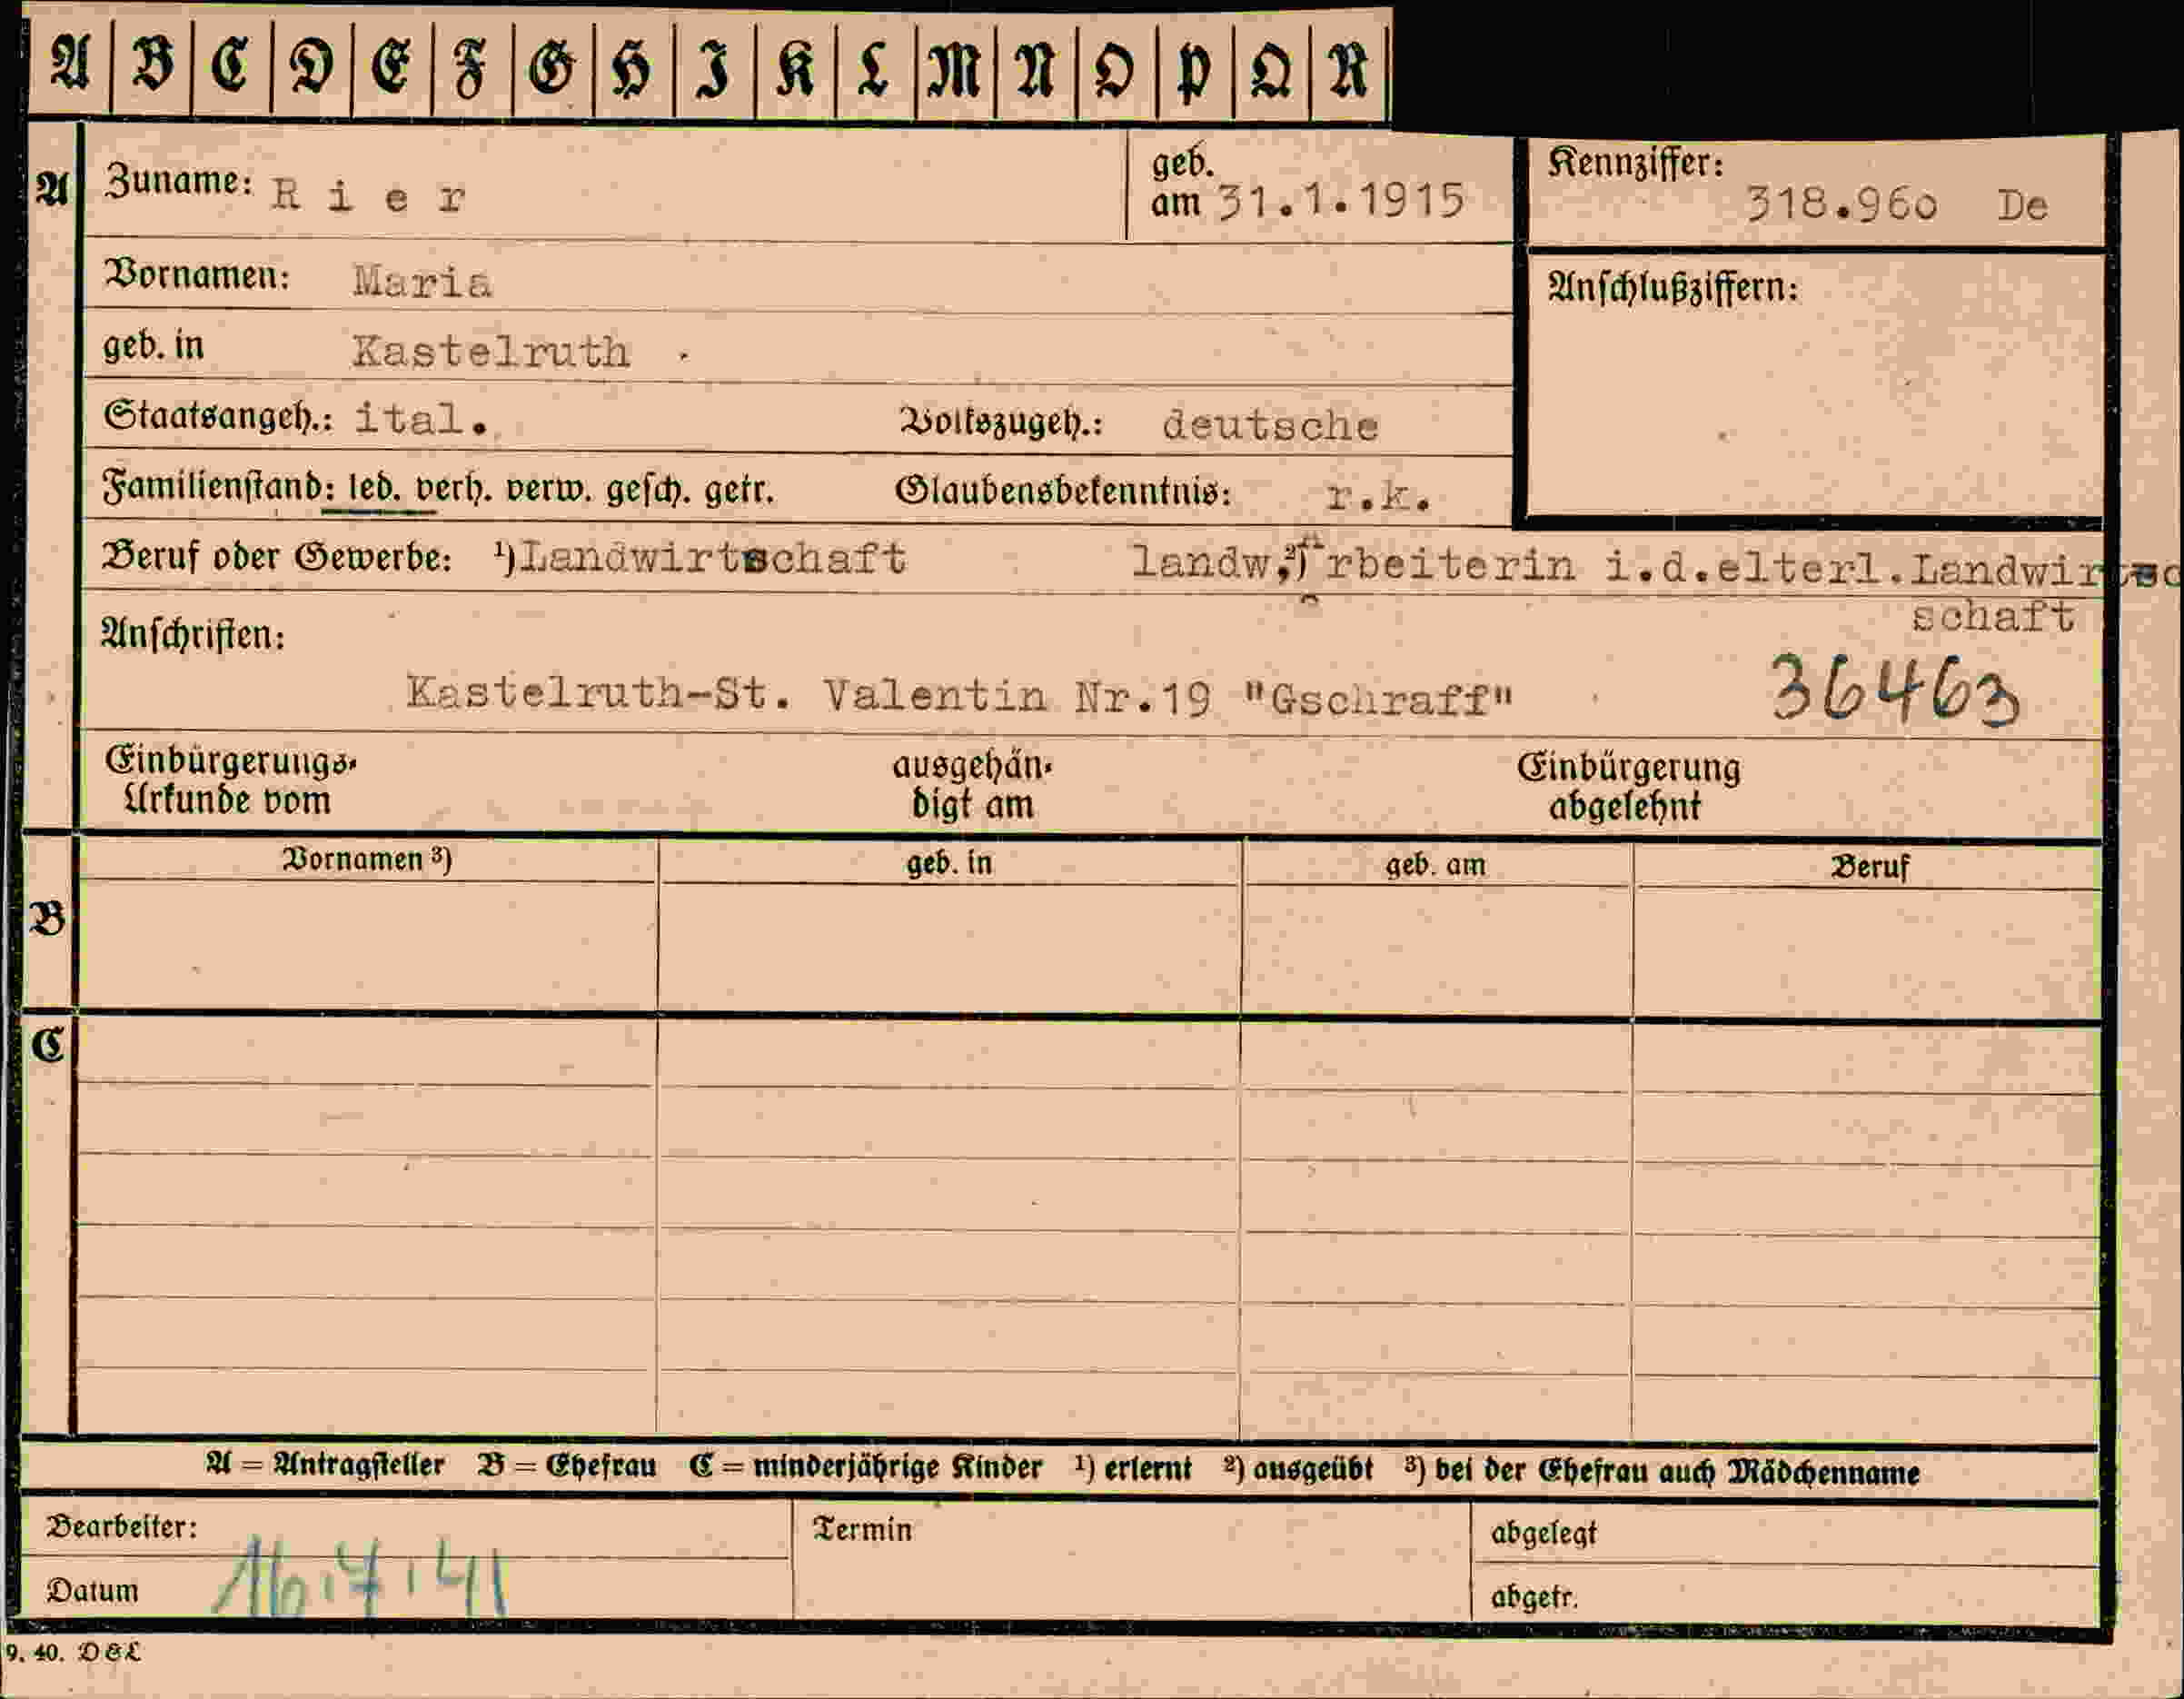 A B C D E F G H I K L M N O P Q R
A Zuname: R i e r geb. am 31.1.1915 Kennziffer: 318.960 De
Vornamen: Maria Anschlußziffern:
geb. in Kastelruth
Staatsangeh.: ital. Volkszugeh.: deutsche
Familienstand: led. verh. verw. gesch. getr. Glaubensbekenntnis: r.k.
Beruf oder Gewerbe: ¹) Landwirtschaft ²) landw. Arbeiterin i.d.elterl.Landwirt
schaft
Anschriften:
Kastelruth-St. Valentin Nr.19 "Gschraff" 36463
Einbürgerungs- ausgehän- Einbürgerung
Urkunde vom digt am abgelehnt
Vornamen ³) geb. in geb. am Beruf
B
C
A = Antragsteller B = Ehefrau C = minderjährige Kinder ¹) erlernt ²) ausgeübt ³) bei der Ehefrau auch Mädchenname
Bearbeiter: Termin abgelegt
Datum 16.7.41 abgetr.
9. 40. D&L